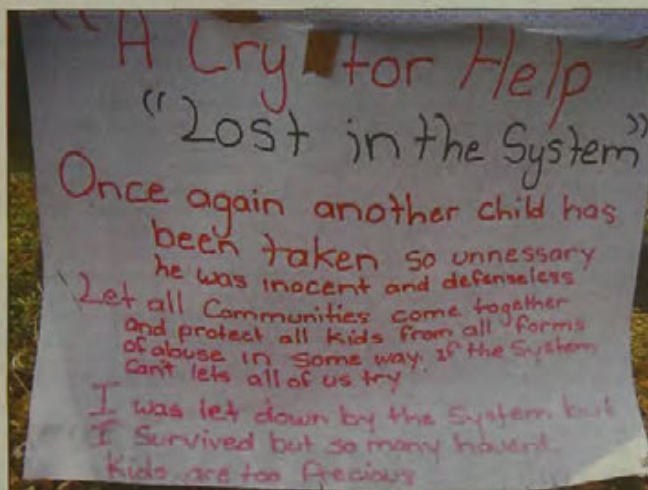 "A Cry for Help"
"Lost in the System"
Once again another child has
been taken so unnessary
he was inocent and defenseless
Let all Communities come together
and protect all kids from all forms
of abuse in some way. If the System
can't lets all of us try
I was let down by the System but
I Survived but so many havent.
Kids are too Precious